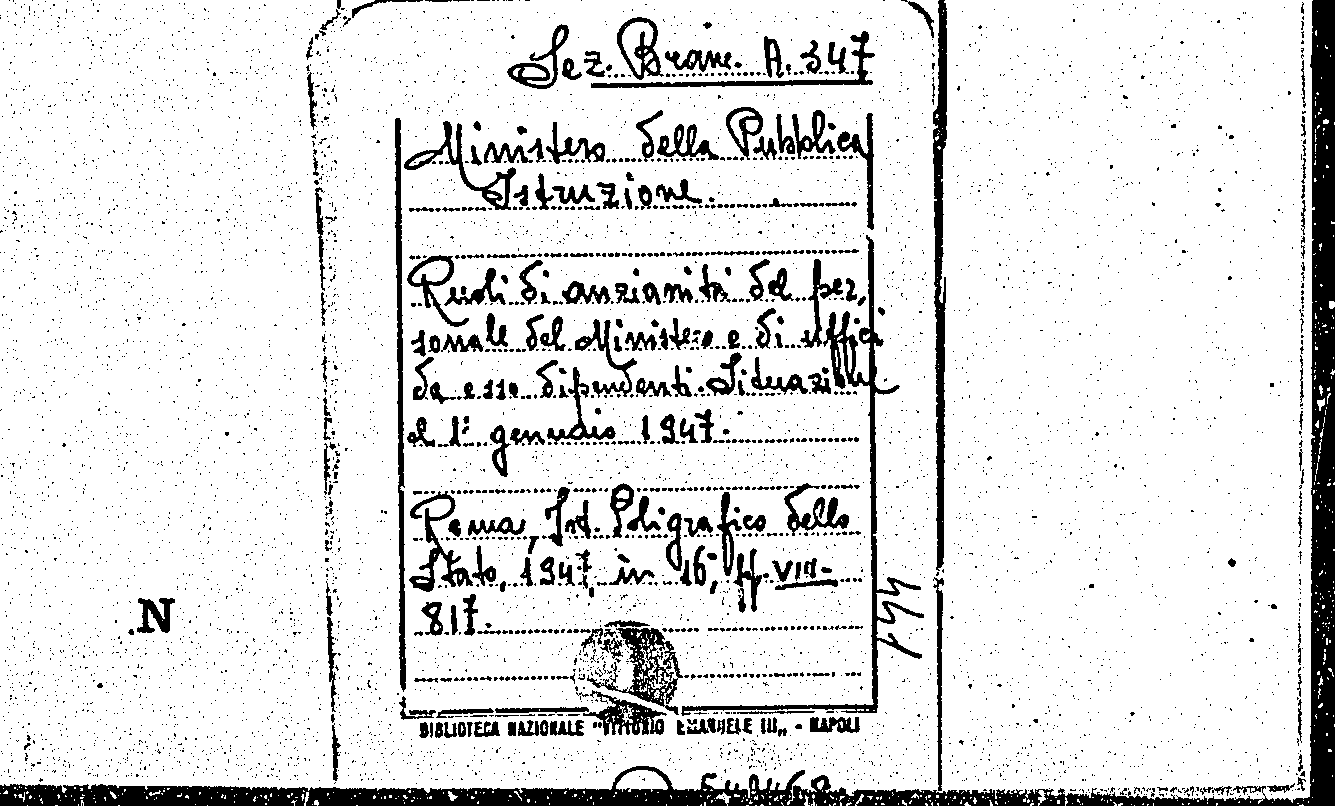 Sez. Branc. A. 347
Ministero della Pubblica
Istruzione.
Ruoli di anzianità del per,
sonale del Ministero e di uffici
da esso dipendenti. Situazione
al 1° gennaio 1947.
Roma, Ist. Poligrafico dello
Stato, 1947, in 16°, pp. VIII-
817.
N
BIBLIOTECA NAZIONALE "VITTORIO EMANUELE III„ - NAPOLI